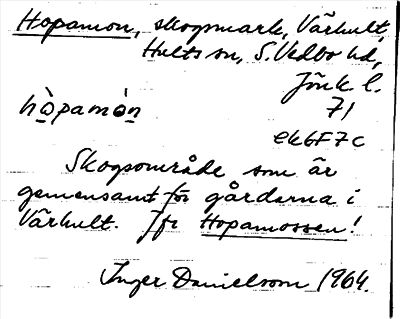 Hopamon, skogsmark, Vårhult,
Hults sn, S. Vedbo hd,
Jönk l.
hòpamòn
71
ek6F7c
Skogsområde som är
gemensamt för gårdarna i
Vårhult. Jfr Hopamossen!
Inger Danielsson 1964.